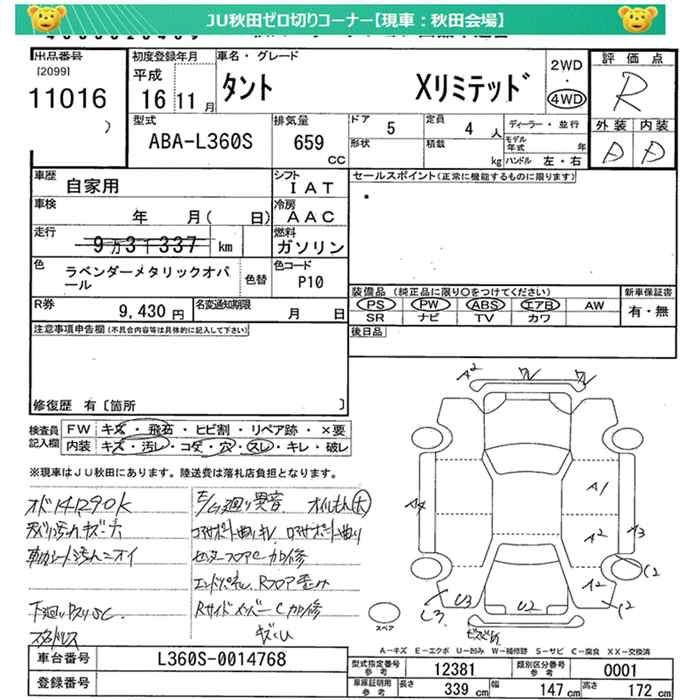 JU秋田ゼロ切りコーナー【現車：秋田会場】
出品番号
[2099]
11016
初度登録年月
平成
16 11月
車名・グレード
タント Xリミテッド
2WD
・
4WD
評価点
R
外装 内装
D D
型式
ABA-L360S
排気量
659
CC
ドア 5
定員 4人
形状
積載 kg
ディーラー・並行
モデル年式 年
ハンドル 左・右
車歴
自家用
シフト
IAT
車検
年 月( 日)
冷房
AAC
走行
9万3千337 km
燃料
ガソリン
色
ラベンダーメタリックオパール
色替
色コード
P10
R券
9,430円
名変通知期限
月 日
セールスポイント(正常に機能するものに限ります)
装備品 (純正品に限り○をつけてください)
PS PW ABS エアB AW
SR ナビ TV カワ
新車保証書
有・無
後日品
注意事項申告欄(不具合内容等は具体的に記入して下さい)
修復歴 有〔箇所 〕
検査員記入欄
FW キズ・飛石・ヒビ割・リペア跡・×要
内装 キズ・汚レ・コゲ・穴・スレ・キレ・破レ
※現車はJU秋田にあります。陸送費は落札店負担となります。
E/G廻り異音 オイルもれ(大)
コアサポート曲り
センターフロアC加修
エンドパネル、Rフロア歪み
RサイドメンバーC加修
キズU
下廻りサビSC
スタッドレス
A2 W W
A1
A4
A2
A3
A2
C2
C2
C3
U3
U2
スペア
A-キズ E-エクボ U-凹み W-補修跡 S-サビ C-腐食 XX-交換済
車台番号
L360S-0014768
登録番号
型式指定番号
参考
12381
類別区分番号
参考
0001
車庫証明用
参考
長さ 339cm
幅 147cm
高さ 172cm